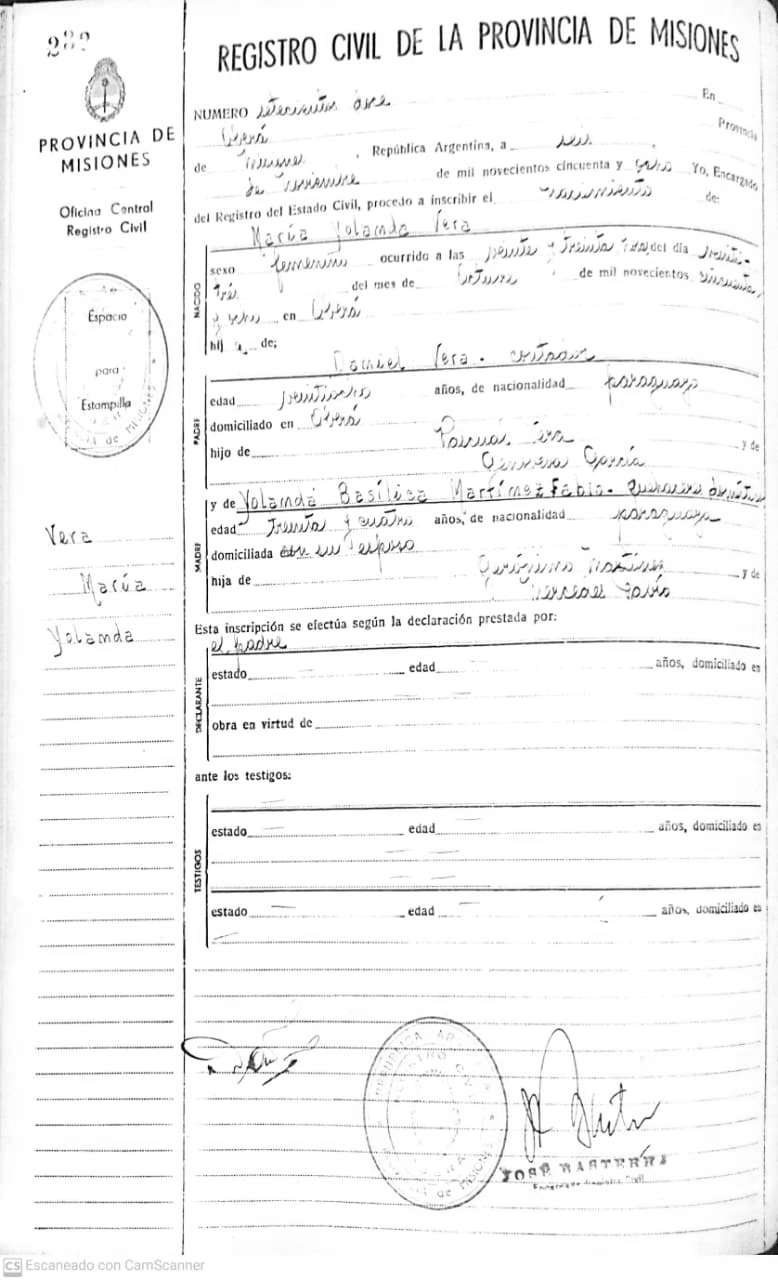 282
REGISTRO CIVIL DE LA PROVINCIA DE MISIONES
PROVINCIA DE
MISIONES
Oficina Central
Registro Civil
Espacio
para
Estampilla
MISIONES
Vera
María
Yolanda
NUMERO setecientos once En
Oberá Provincia
de Misiones, República Argentina, a seis
de noviembre de mil novecientos cincuenta y ocho Yo, Encargado
del Registro del Estado Civil, procedo a inscribir el nacimiento de:
María Yolanda Vera
NACIDO
sexo femenino ocurrido a las veinte y treinta del día veinti-
trés del mes de Octubre de mil novecientos cincuenta
y ocho en Oberá
hij a de:
Daniel Vera - contador
PADRE
edad veintiocho años, de nacionalidad paraguaya
domiciliado en Oberá
hijo de Pascual Vera y de
Genoveva García
y de Yolanda Basílica Martínez Fabio -
MADRE
edad treinta y cuatro años, de nacionalidad paraguaya
domiciliada su esposo
hija de Gerónimo Martínez y de
Mercedes
Esta inscripción se efectúa según la declaración prestada por:
el padre
DECLARANTE
estado edad años, domiciliado en
obra en virtud de
ante los testigos:
TESTIGOS
estado edad años, domiciliado en
estado edad años, domiciliado en
REPUBLICA
MISIONES
JOSÉ BASTERRA
CS Escaneado con CamScanner